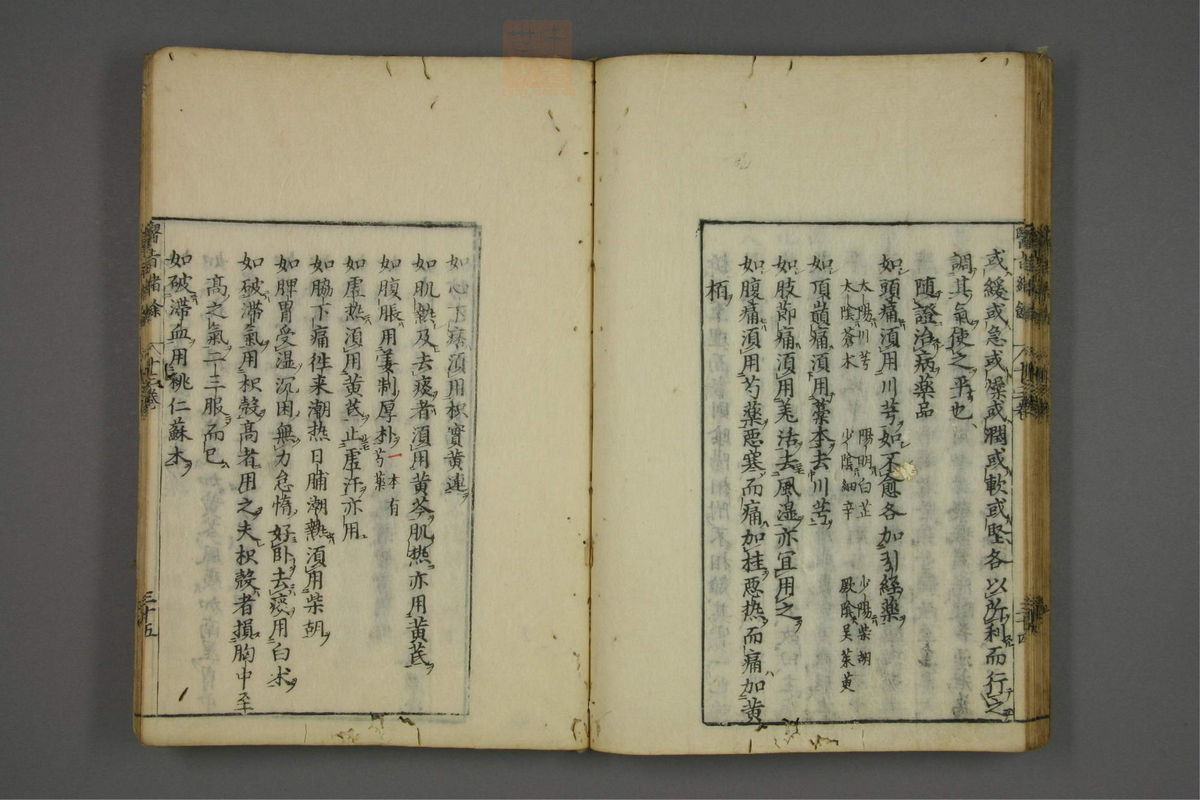 或緩或急或燥或潤或軟或堅各以所利而行之
調其氣使之平也
隨證治病藥品
如頭痛須用川芎如不愈各加引經藥
太陽川芎 陽明白芷 少陽柴胡
太陰蒼木 少陰細辛 厥陰吳茱萸
如頂巔痛須用藁本去川芎
如肢節痛須用羌活去風湿亦宜用之
如腹痛須用芍藥悪寒而痛加桂悪热而痛加黄
栢
三十四
如心下痞須用枳實黄連
如肌熱及去痰者須用黄芩肌热亦用黄芪
如腹脹用姜制厚朴一本有芍藥
如虚热須用黄芪止虚汗亦用
如脇下痛徃来潮热日晡潮熱須用柴胡
如脾胃受湿沉困無力怠惰好卧去痰用白术
如破滞氣用枳殼髙者用之夫枳殼者損胸中至
髙之氣二三服而已
如破滞血用桃仁蘇木
三十五